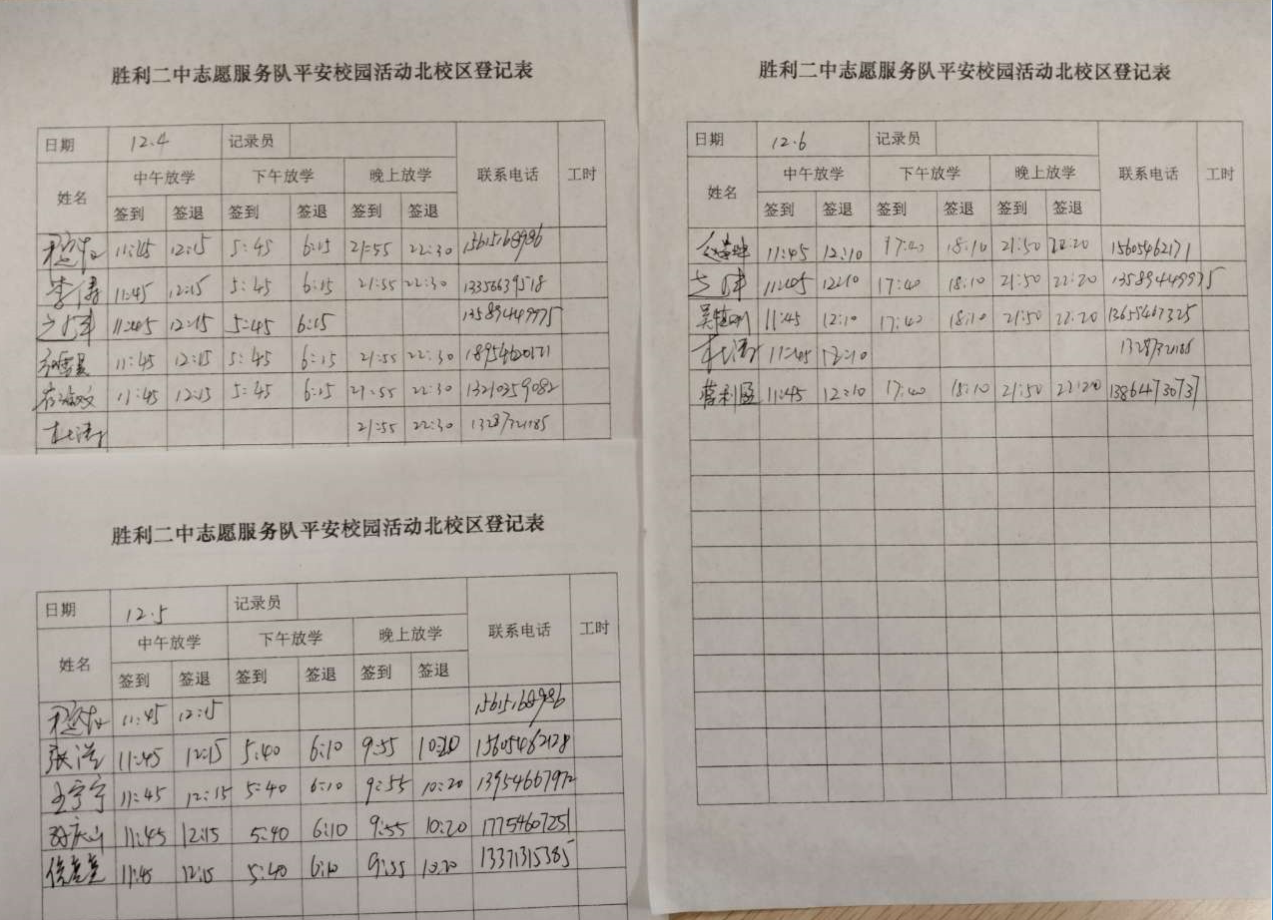 胜利二中志愿服务队平安校园活动北校区登记表
日期 12.4 记录员
姓名 中午放学 下午放学 晚上放学 联系电话 工时
签到 签退 签到 签退 签到 签退
11:45 12:15 5:45 6:15 21:55 22:30
李涛 11:45 12:15 5:45 6:15 21:55 22:30 13356639518
11:45 12:15 5:45 6:15 13589449975
11:45 12:15 5:45 6:15 21:55 22:30
11:45 12:15 5:45 6:15 21:55 22:30 13210359082
杜涛 21:55 22:30
胜利二中志愿服务队平安校园活动北校区登记表
日期 12.5 记录员
姓名 中午放学 下午放学 晚上放学 联系电话 工时
签到 签退 签到 签退 签到 签退
11:45 12:15
张浩 11:45 12:15 5:40 6:10 9:55 10:20 15605462128
王宁宁 11:45 12:15 5:40 6:10 9:55 10:20 13954667972
孙庆山 11:45 12:15 5:40 6:10 9:55 10:20 17754607251
11:45 12:15 5:40 6:10 9:55 10:20 13371315385
胜利二中志愿服务队平安校园活动北校区登记表
日期 12.6 记录员
姓名 中午放学 下午放学 晚上放学 联系电话 工时
签到 签退 签到 签退 签到 签退
11:45 12:10 17:40 18:10 21:50 22:20 15605462171
11:45 12:10 17:40 18:10 21:50 22:20 13589449975
11:45 12:10 17:40 18:10 21:50 22:20 13655467325
杜涛 11:45 12:10
11:45 12:10 17:40 18:10 21:50 22:20 13864730737